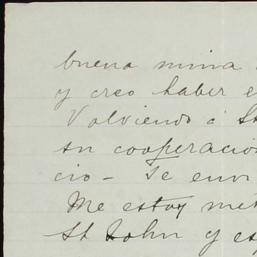 buena mina
y creo haber e
Volviendo á St
su cooperació
cio - Te envi
Me estoy met
St John y es